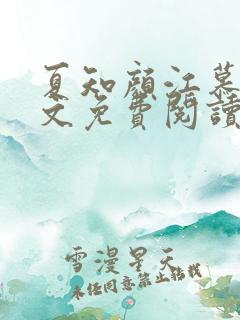 夏知顏江慕
文免費閱讀
雪漫星天
未经同意禁止转载